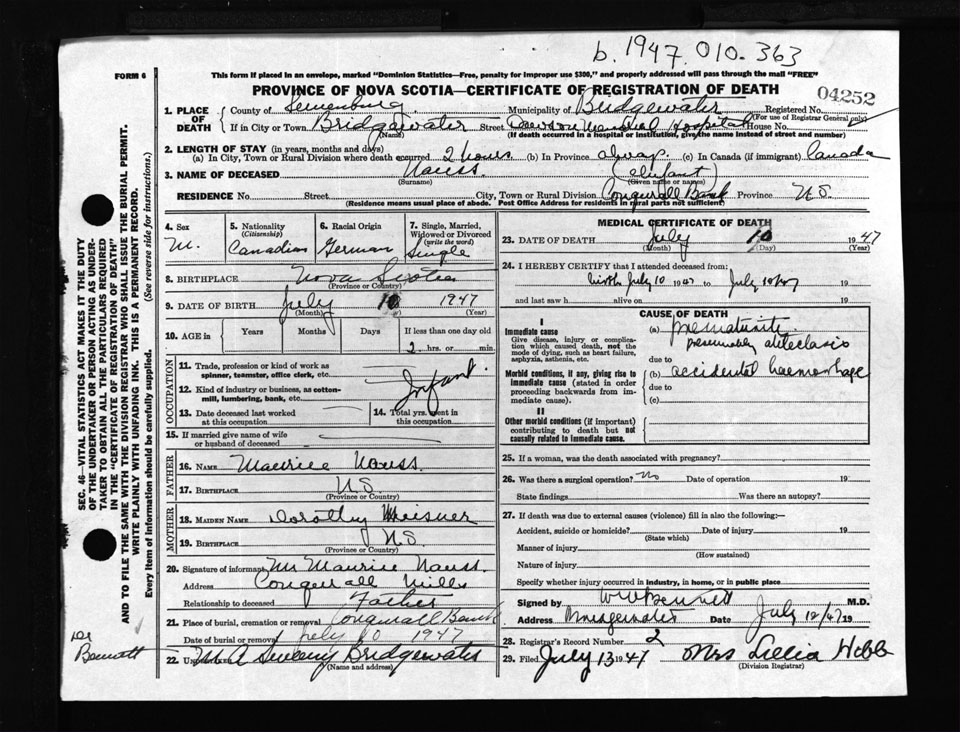 b. 1947.010-363
FORM 6
This form if placed in an envelope, marked "Dominion Statistics—Free, penalty for improper use $300," and properly addressed will pass through the mail "FREE"
PROVINCE OF NOVA SCOTIA—CERTIFICATE OF REGISTRATION OF DEATH
04252
1. PLACE OF DEATH
County of Lunenburg Municipality of Bridgewater Registered No.
(For use of Registrar General only)
If in City or Town Bridgewater Street Dawson Memorial Hospital House No.
(Name) (If death occurred in a hospital or institution, give the name instead of street and number)
2. LENGTH OF STAY (in years, months and days)
(a) In City, Town or Rural Division where death occurred 2 hours. (b) In Province always. (c) In Canada (if immigrant) Canada
3. NAME OF DECEASED Nauss (Infant)
(Surname) (Given name or names)
RESIDENCE No. Street City, Town or Rural Division Conquerall Bank Province N.S.
(Residence means usual place of abode. Post Office Address for residents in rural parts not sufficient)
4. Sex
M.
5. Nationality
(Citizenship)
Canadian
6. Racial Origin
German
7. Single, Married, Widowed or Divorced
(write the word)
Single
8. BIRTHPLACE Nova Scotia
(Province or Country)
9. DATE OF BIRTH July 10 1947
(Month) (Day) (Year)
10. AGE in
Years Months Days If less than one day old
2 hrs. or min.
OCCUPATION
11. Trade, profession or kind of work as spinner, teamster, office clerk, etc.
Infant.
12. Kind of industry or business, as cotton-mill, lumbering, bank, etc.
13. Date deceased last worked at this occupation
14. Total yrs. spent in this occupation
15. If married give name of wife or husband of deceased
FATHER
16. NAME Maurice Nauss.
17. BIRTHPLACE N.S.
(Province or Country)
MOTHER
18. MAIDEN NAME Dorothy Meisner
19. BIRTHPLACE N.S.
(Province or Country)
20. Signature of informant Mr Maurice Nauss.
Address Conquerall Mills
Relationship to deceased Father
21. Place of burial, cremation or removal Conquerall Bank
Date of burial or removal July 10 1947
22. Undertaker Bridgewater
(Name and address)
Dr Bennett
MEDICAL CERTIFICATE OF DEATH
23. DATE OF DEATH July 10 1947
(Month) (Day) (Year)
24. I HEREBY CERTIFY that I attended deceased from:
birth July 10 1947 to July 10/47 19
and last saw h alive on 19
CAUSE OF DEATH
I
Immediate cause
Give disease, injury or complication which caused death, not the mode of dying, such as heart failure, asphyxia, asthenia, etc.
(a) prematurity.
presumably atelectasis
due to
Morbid conditions, if any, giving rise to immediate cause (stated in order proceeding backwards from immediate cause).
(b) accidental haemorrhage
due to
(c)
II
Other morbid conditions (if important) contributing to death but not causally related to immediate cause.
25. If a woman, was the death associated with pregnancy?
26. Was there a surgical operation? No Date of operation 19
State findings Was there an autopsy?
27. If death was due to external causes (violence) fill in also the following:—
Accident, suicide or homicide? Date of injury 19
(State which)
Manner of injury
(How sustained)
Nature of injury
Specify whether injury occurred in industry, in home, or in public place
Signed by W W Bennett M.D.
Address Bridgewater Date July 12/47 19
28. Registrar's Record Number 2
29. Filed July 13 1947 Mrs Lillia Hebb
(Division Registrar)
SEC. 46—VITAL STATISTICS ACT MAKES IT THE DUTY
OF THE UNDERTAKER OR PERSON ACTING AS UNDER-
TAKER TO OBTAIN ALL THE PARTICULARS REQUIRED
IN THE "CERTIFICATE OF REGISTRATION OF DEATH"
AND TO FILE THE SAME WITH THE DIVISION REGISTRAR WHO SHALL ISSUE THE BURIAL PERMIT.
WRITE PLAINLY WITH UNFADING INK. THIS IS A PERMANENT RECORD.
Every item of information should be carefully supplied. (See reverse side for instructions.)